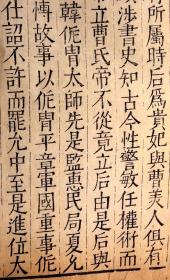 可所屬時后爲貴妃與曹美人俱有
頗涉書史知古今性警敏任權術而
立曹氏帝不從竟立后由是后與
韓侂胄太師先是監惠民局夏允
慱故事以侂胄平章軍國重事侂
仕詔不許而罷允中至是進位太